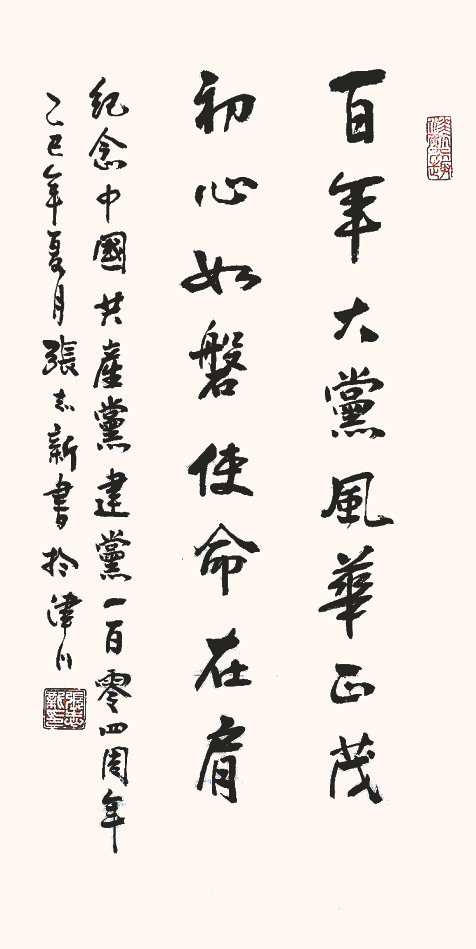 百年大黨風華正茂
初心如磐使命在肩
紀念中國共產黨建黨一百零四周年
乙巳年夏月張志新書於津门